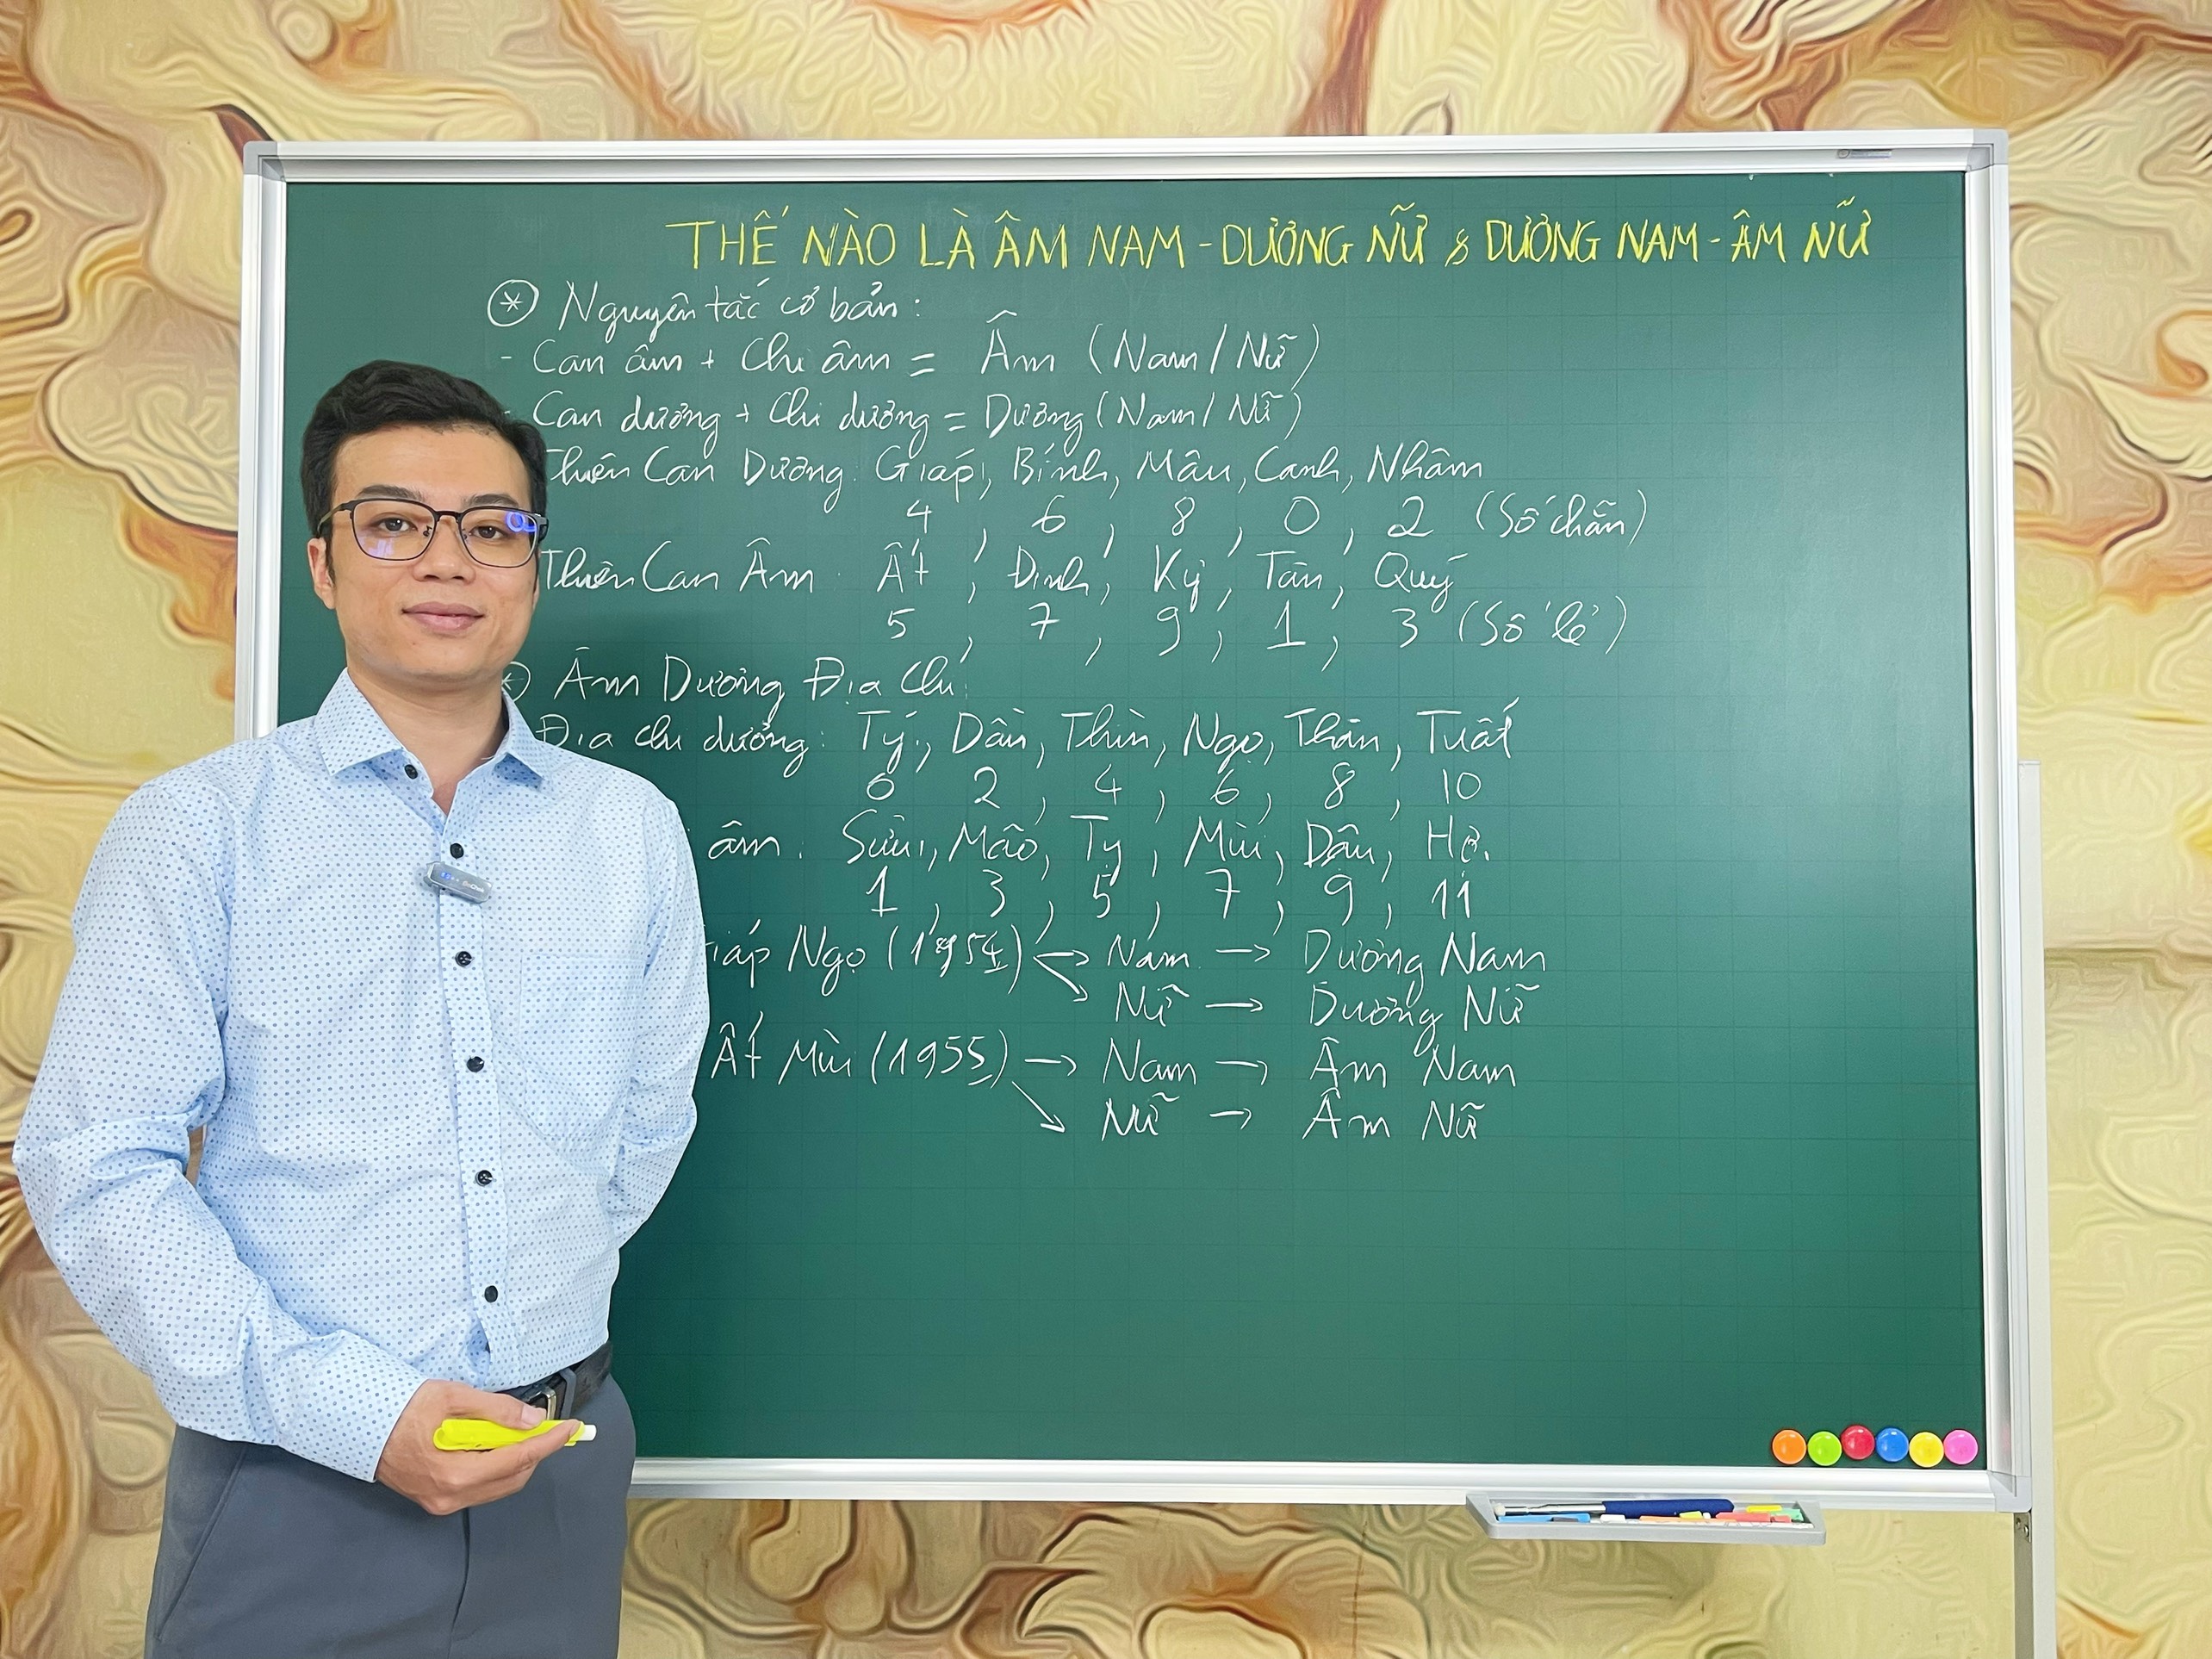 THẾ NÀO LÀ ÂM NAM - DƯƠNG NỮ & DƯƠNG NAM - ÂM NỮ
Nguyên tắc cơ bản:
- Can âm + Chi âm = Âm (Nam/Nữ)
- Can dương + Chi dương = Dương (Nam/Nữ)
Thiên Can Dương: Giáp, Bính, Mậu, Canh, Nhâm
4, 6, 8, 0, 2 (Số chẵn)
Thiên Can Âm: Ất, Đinh, Kỷ, Tân, Quý
5, 7, 9, 1, 3 (Số lẻ)
Âm Dương Địa Chi:
Địa chi dương: Tý, Dần, Thìn, Ngọ, Thân, Tuất
0 2, 4, 6, 8, 10
âm: Sửu, Mão, Tỵ, Mùi, Dậu, Hợi
1, 3, 5, 7, 9, 11
iáp Ngọ (1954) → Nam → Dương Nam
Nữ → Dương Nữ
Ất Mùi (1955) → Nam → Âm Nam
Nữ → Âm Nữ